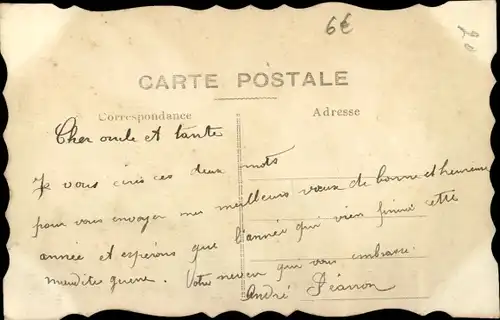 6€
CARTE POSTALE
Correspondance
Adresse
Cher oncle et tante
Je vous ecris ces deux mots
pour vous envoyer mes meilleurs vœux de bonne et heureuse
année et espérons que l'année qui vien finira cette
maudite guerre. Votre neveu qui vous embrasse.
André